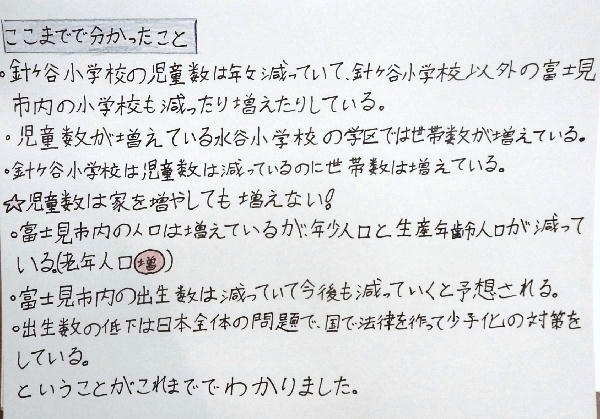 ここまでで分かったこと
・針ケ谷小学校の児童数は年々減っていて、針ケ谷小学校以外の富士見
市内の小学校も減ったり増えたりしている。
・児童数が増えている水谷小学校の学区では世帯数が増えている。
・針ケ谷小学校は児童数は減っているのに世帯数は増えている。
☆児童数は家を増やしても増えない!
・富士見市内の人口は増えているが、年少人口と生産年齢人口が減って
いる。(老年人口増)
・富士見市内の出生数は減っていて今後も減っていくと予想される。
・出生数の低下は日本全体の問題で、国で法律を作って少子化の対策を
している。
ということがこれまででわかりました。